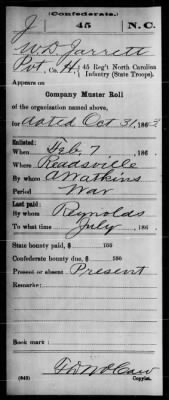 (Confederate.)
J 45 N.C.
W D Jarrett
Pvt, Co. H, 45 Reg't North Carolina
Infantry (State Troops).
Appears on
Company Muster Roll
of the organization named above,
for dated Oct 31, 1863.
Enlisted:
When Feb. 7, 186
Where Readsville
By whom A Watkins
Period War
Last paid:
By whom Reynolds
To what time July, 186
State bounty paid, $ 100
Confederate bounty due, $ 100
Present or absent Present
Remarks:
Book mark:
(642) Copyist.